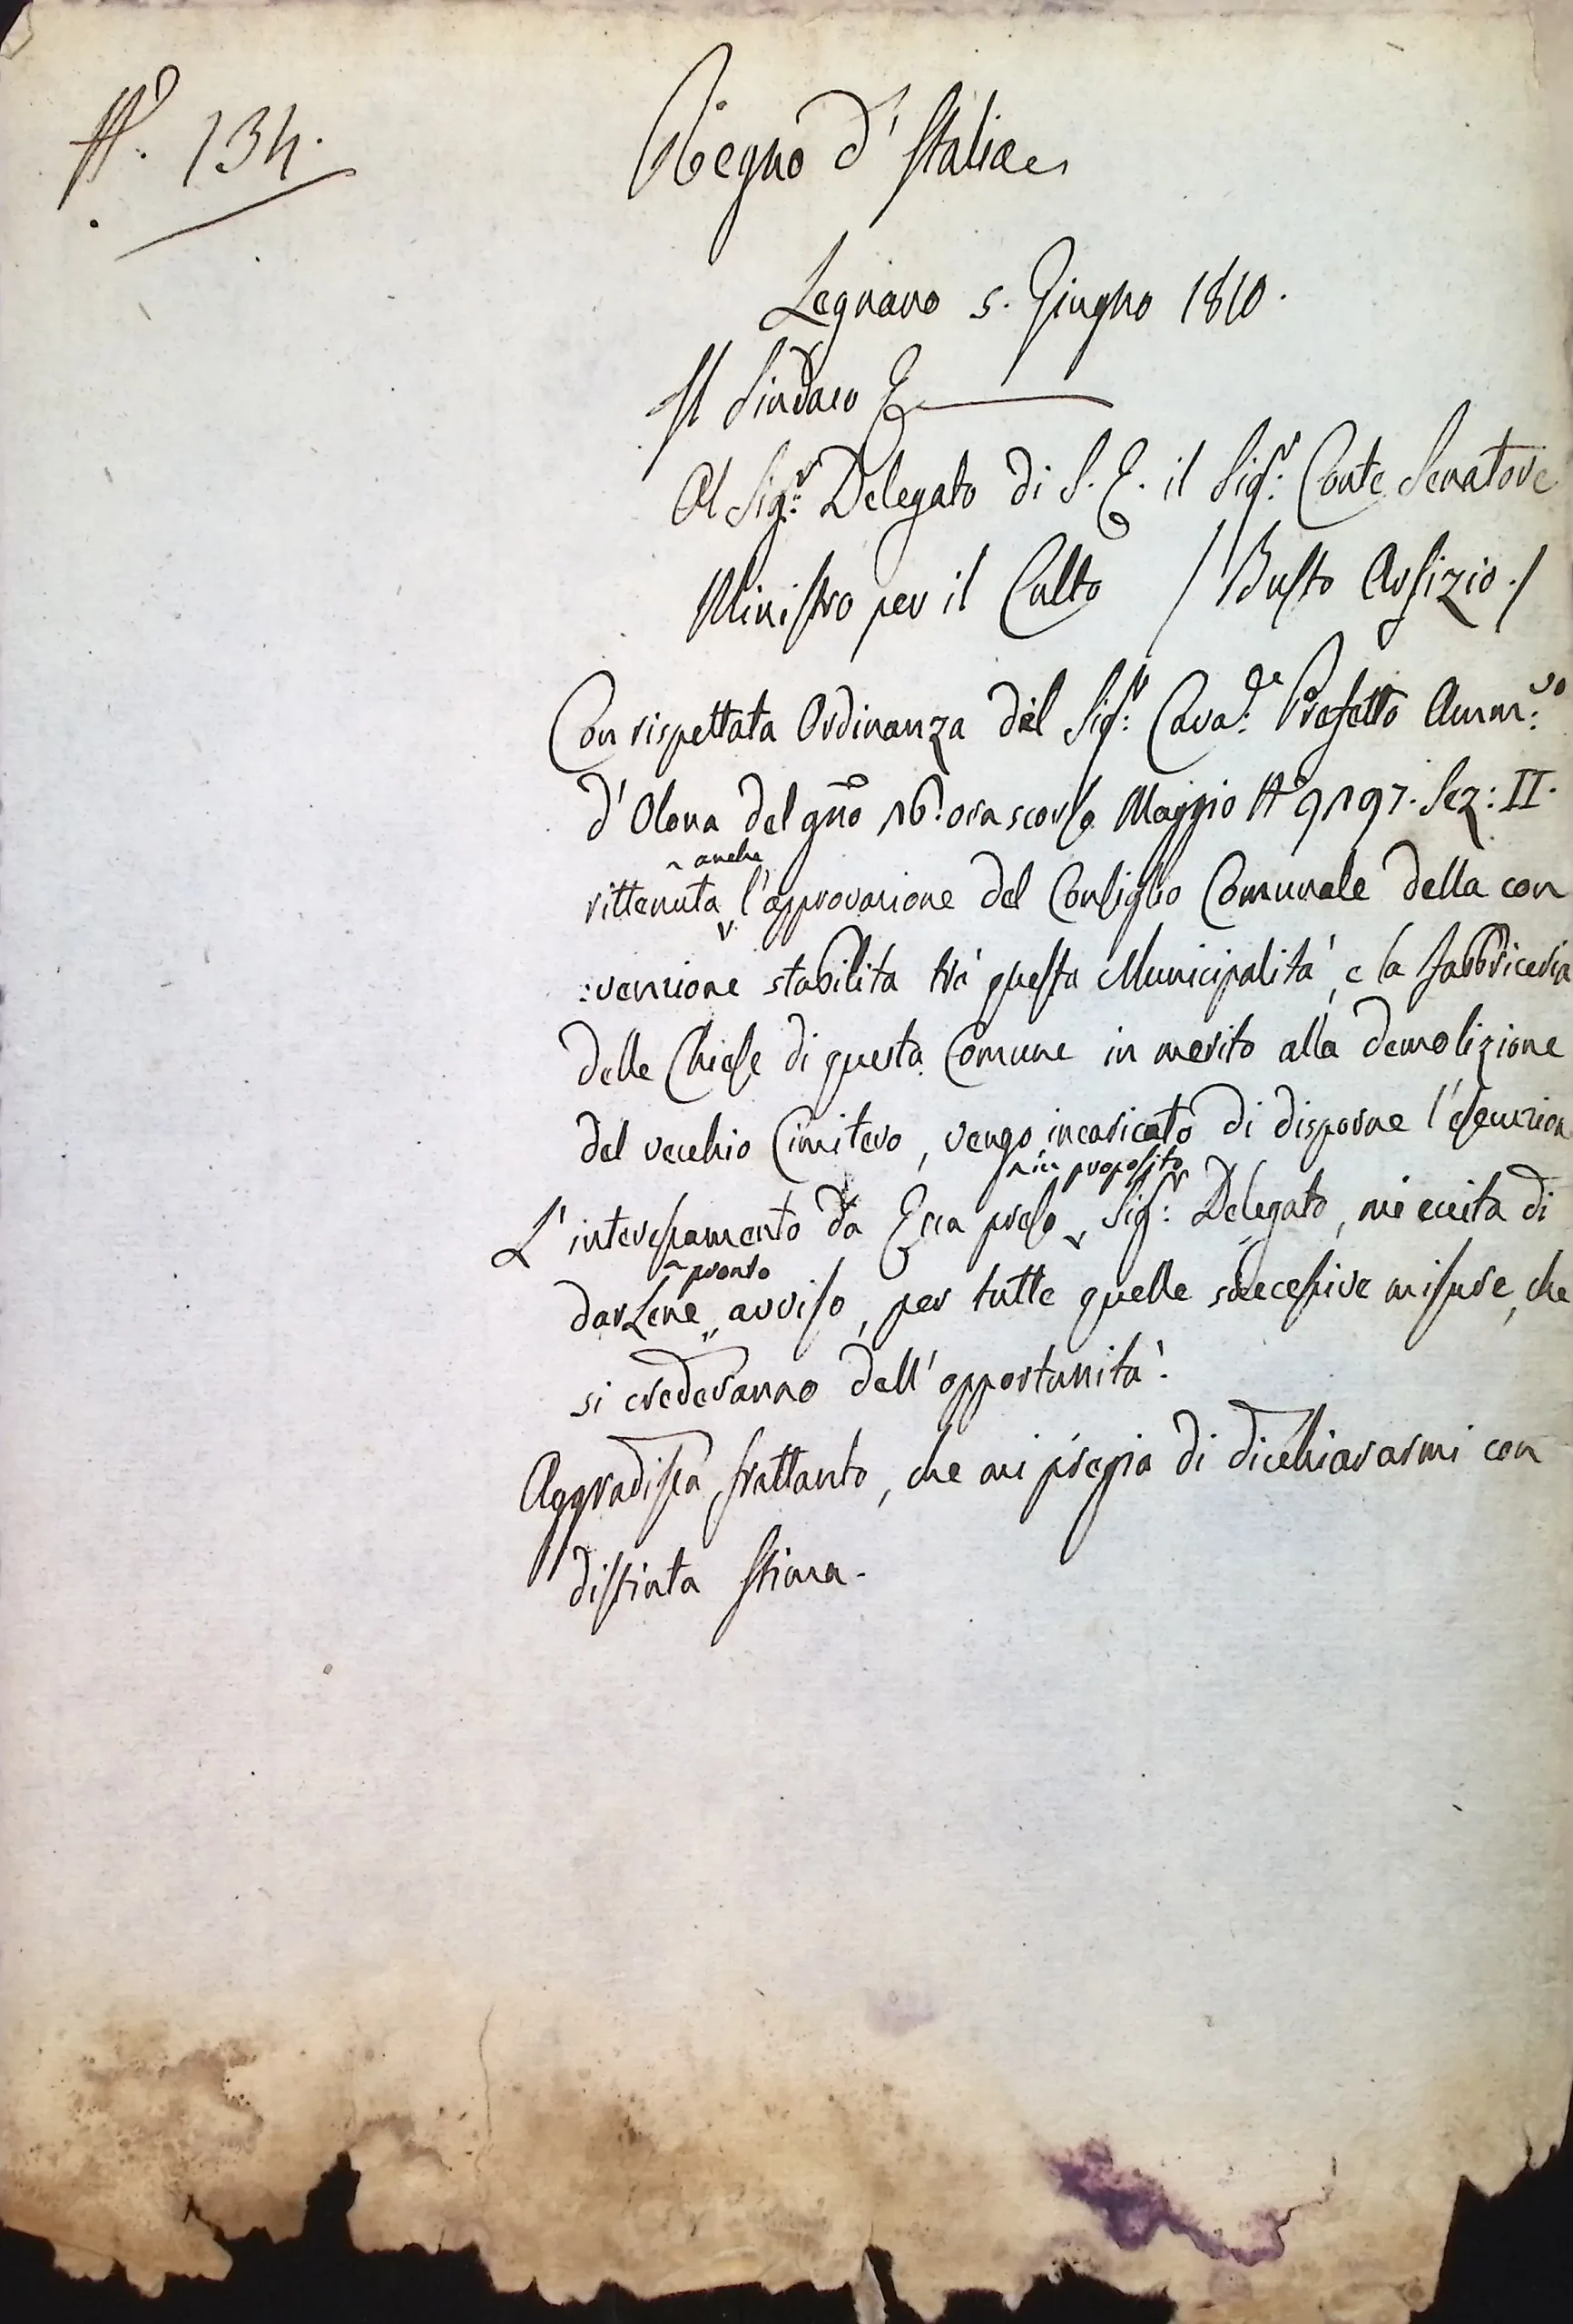 N.° 134.
Regno d'Italia
Legnano 5. Giugno 1810.
Il Sindaco
Al Sig.r Delegato di S. E. il Sig.r Conte Senatore
Ministro per il Culto / Busto Arsizio./
Con rispettata Ordinanza del Sig.r Cava.e Prefetto Amm.vo
d'Olona del gno 16. ora scorso Maggio N° 9197. Sez: II.
anche
rittenuta l'approvazione del Consiglio Comunale della con
:venzione stabilita trà questa Municipalità, e la Fabbriceria
delle Chiese di questa Comune in merito alla demolizione
del vecchio Cimitero, vengo incaricato di disporne l'esecuzion
in proposito
L'interessamento da Essa preso Sig.r Delegato, mi eccita di
pronto
darLene avviso, per tutte quelle successive misure, che
si crederanno dell'opportunità.
Aggradisca frattanto, che mi pregia di dicchiararmi con
distinta stima.